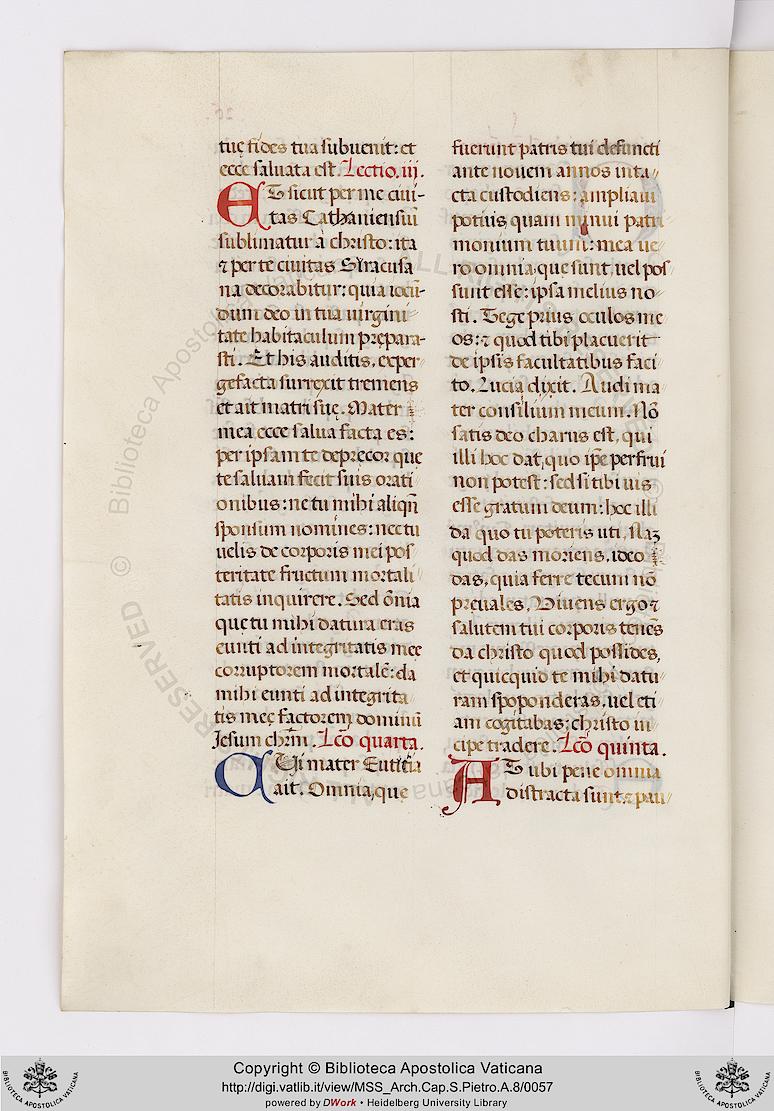 tuę fides tua subuenit: et
ecce saluata est. Lectio. iij.
ET sicut per me ciui-
tas Cathaniensiū
sublimatur à christo: ita
⁊ per te ciuitas Siracusa
na decorabitur: quia iocū-
dum deo in tua uirgini
tate habitaculum prępara-
sti. Et his auditis, exper-
gefacta surrexit tremens
et ait matri suę. Mater
mea ecce salua facta es:
per ipsam te deprecor que
te saluam fecit suis orati
onibus: ne tu mihi aliqñ
sponsum nomines: nec tu
uelis de corporis mei pos
teritate fructum mortali
tatis inquirere. Sed ōnia
que tu mihi datura eras
eunti ad integritatis meę
corruptorem mortalē: da
mihi eunti ad integrita
tis meę factorem dominū
Jesum chrm̄. Lcō quarta.
CUi mater Euticia
ait. Omnia, que
fuerunt patris tui defuncti
ante nouem annos inta-
cta custodiens: ampliaui
potius, quam minui patri
monium tuum: mea ue
ro omnia que sunt, uel pos
sunt esse: ipsa melius no
sti. Tege prius oculos me
os: ⁊ quod tibi placuerit
de ipsis facultatibus faci
to. Lucia dixit. Audi ma
ter consilium meum. Nō
satis deo charus est, qui
illi hoc dat, quo ip̄e perfrui
non potest: sed si tibi uis
esse gratum deum: hoc illi
da quo tu poteris uti. Naʒ
quod das moriens, ideo
das, quia ferre tecum nō
preuales. Viuens ergo ⁊
salutem tui corporis tenēs
da christo quod possides,
et quicquid te mihi datu
ram spoponderas, uel eti
am cogitabas; christo in
cipe tradere. Lcō quinta.
AT ubi pene omnia
distracta sunt, ⁊ pau
© Biblioteca Apostolica Vaticana
ALL RIGHTS RESERVED
Copyright © Biblioteca Apostolica Vaticana
http://digi.vatlib.it/view/MSS_Arch.Cap.S.Pietro.A.8/0057
powered by DWork • Heidelberg University Library
BIBLIOTECA APOSTOLICA VATICANA
BIBLIOTECA APOSTOLICA VATICANA